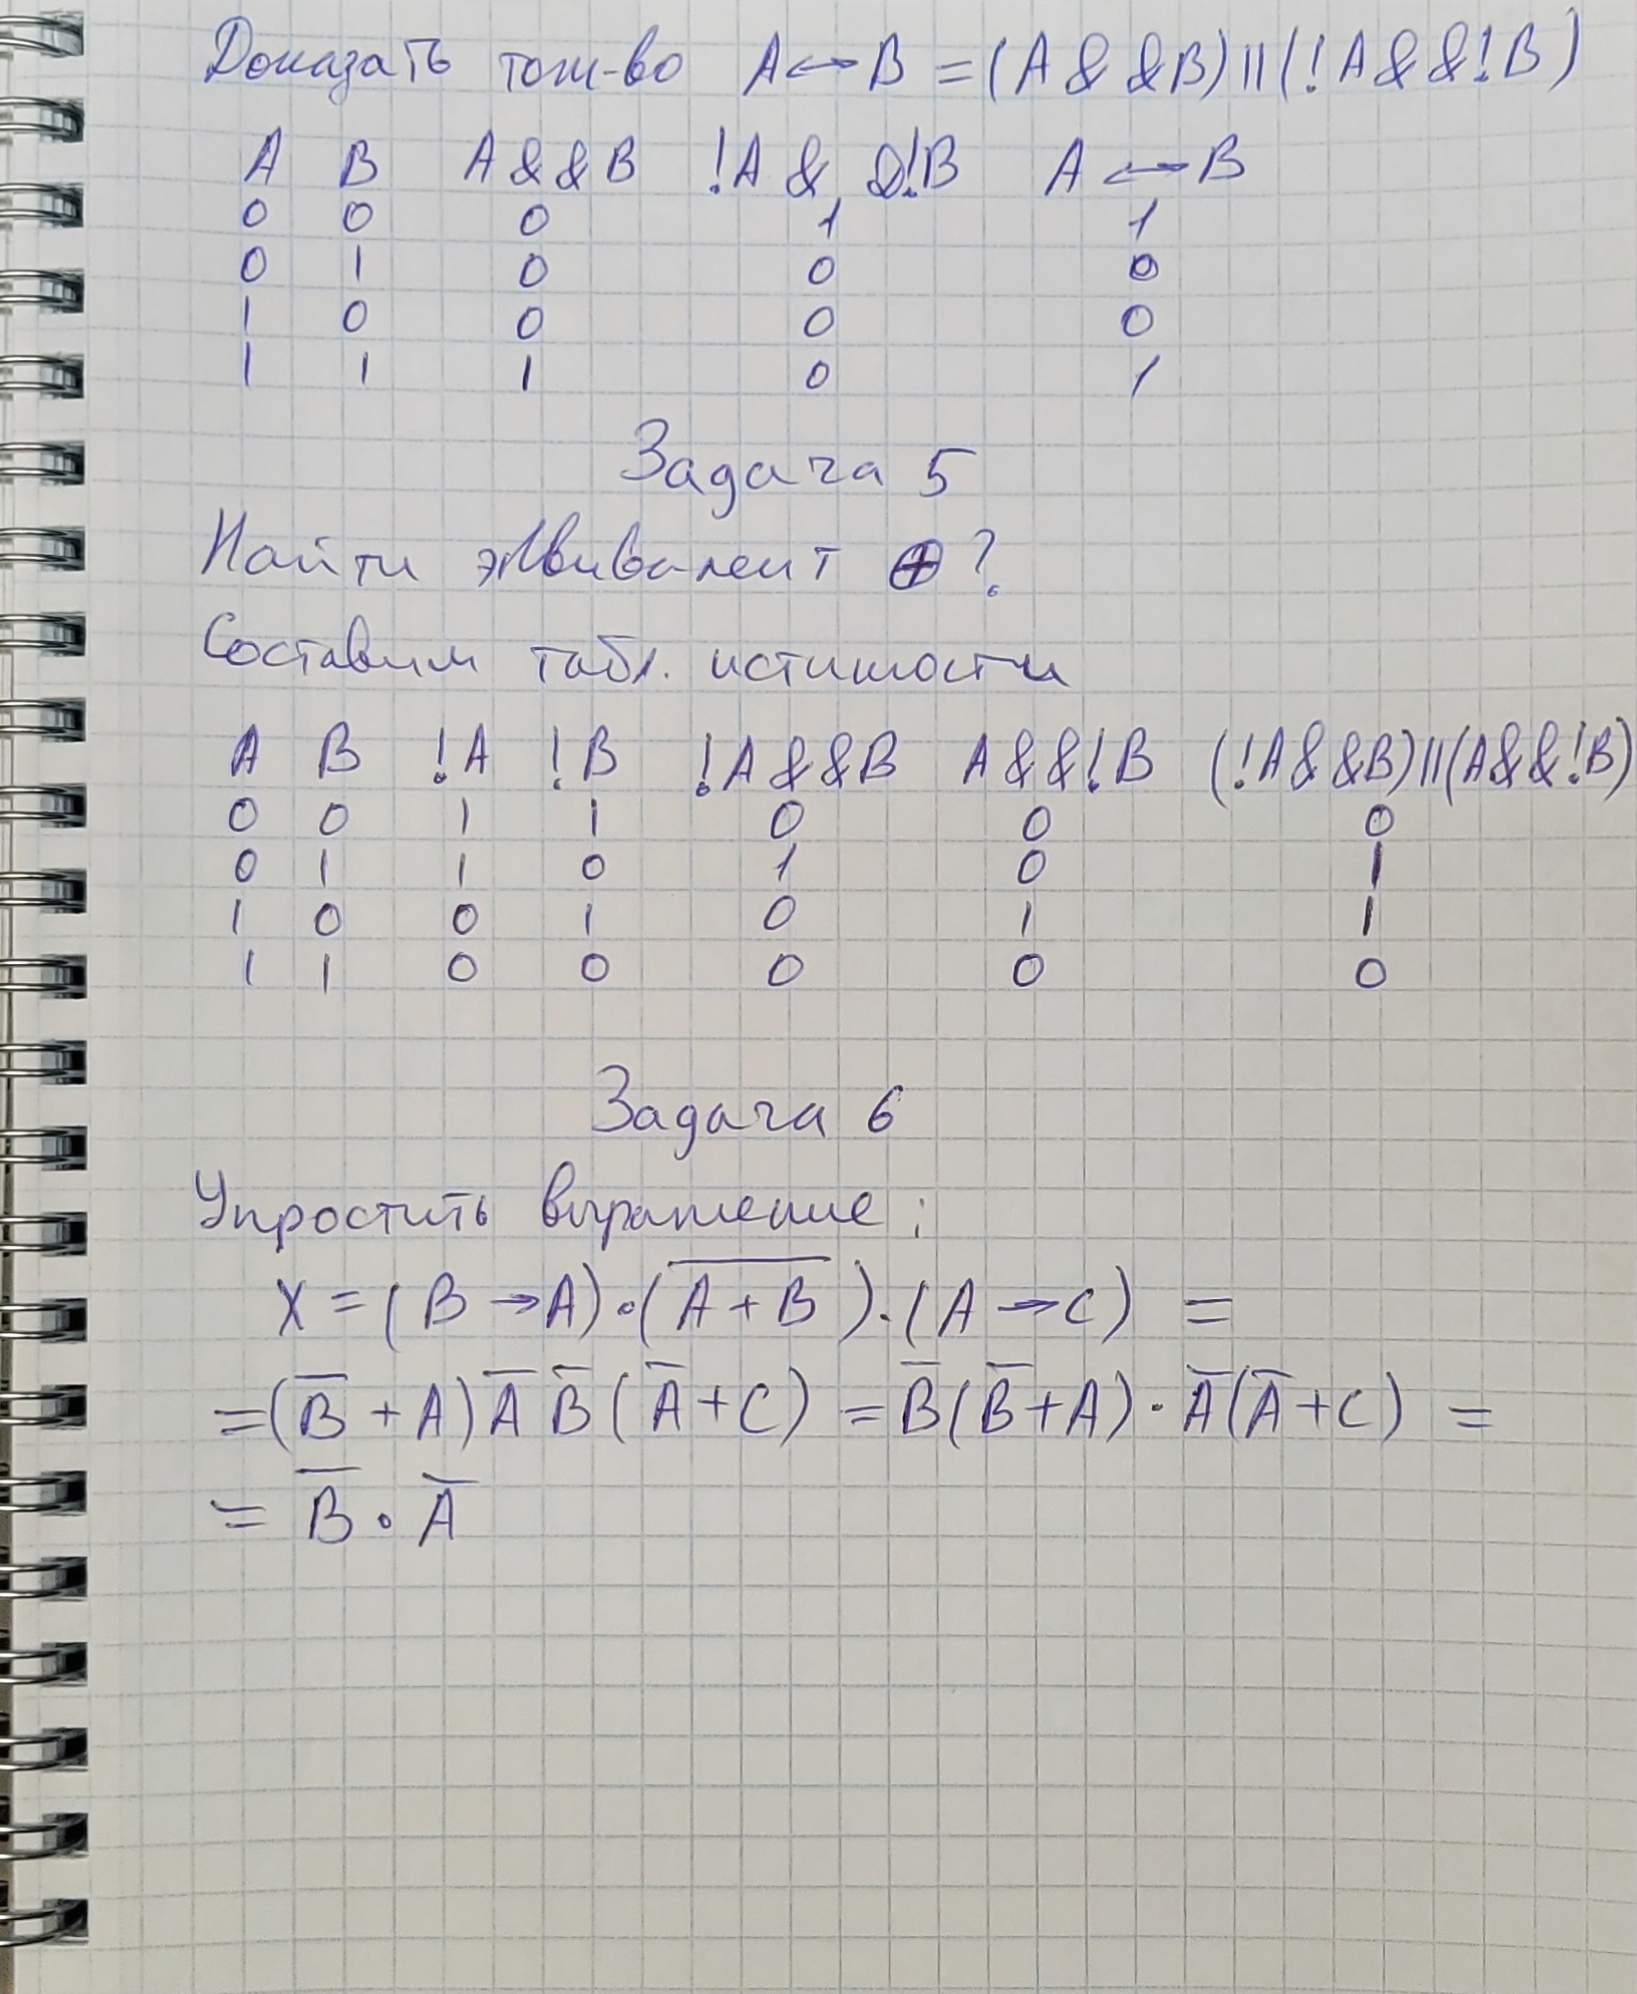 Доказать тож-во A↔B = (A&&B)||(!A&&!B)
A B A&&B !A&&!B A↔B
0 0 0 1 1
0 1 0 0 0
1 0 0 0 0
1 1 1 0 1
Задача 5
Найти эквивалент ⊕?
Составим табл. истинности
A B !A !B !A&&B A&&!B (!A&&B)||(A&&!B)
0 0 1 1 0 0 0
0 1 1 0 1 0 1
1 0 0 1 0 1 1
1 1 0 0 0 0 0
Задача 6
Упростить выражение:
X = (B→A)·(A̅ ̅+̅ ̅B̅)·(A→C) =
= (B̅ + A) A̅ B̅ (A̅ + C) = B̅(B̅ + A)·A̅(A̅ + C) =
= B̅ · A̅